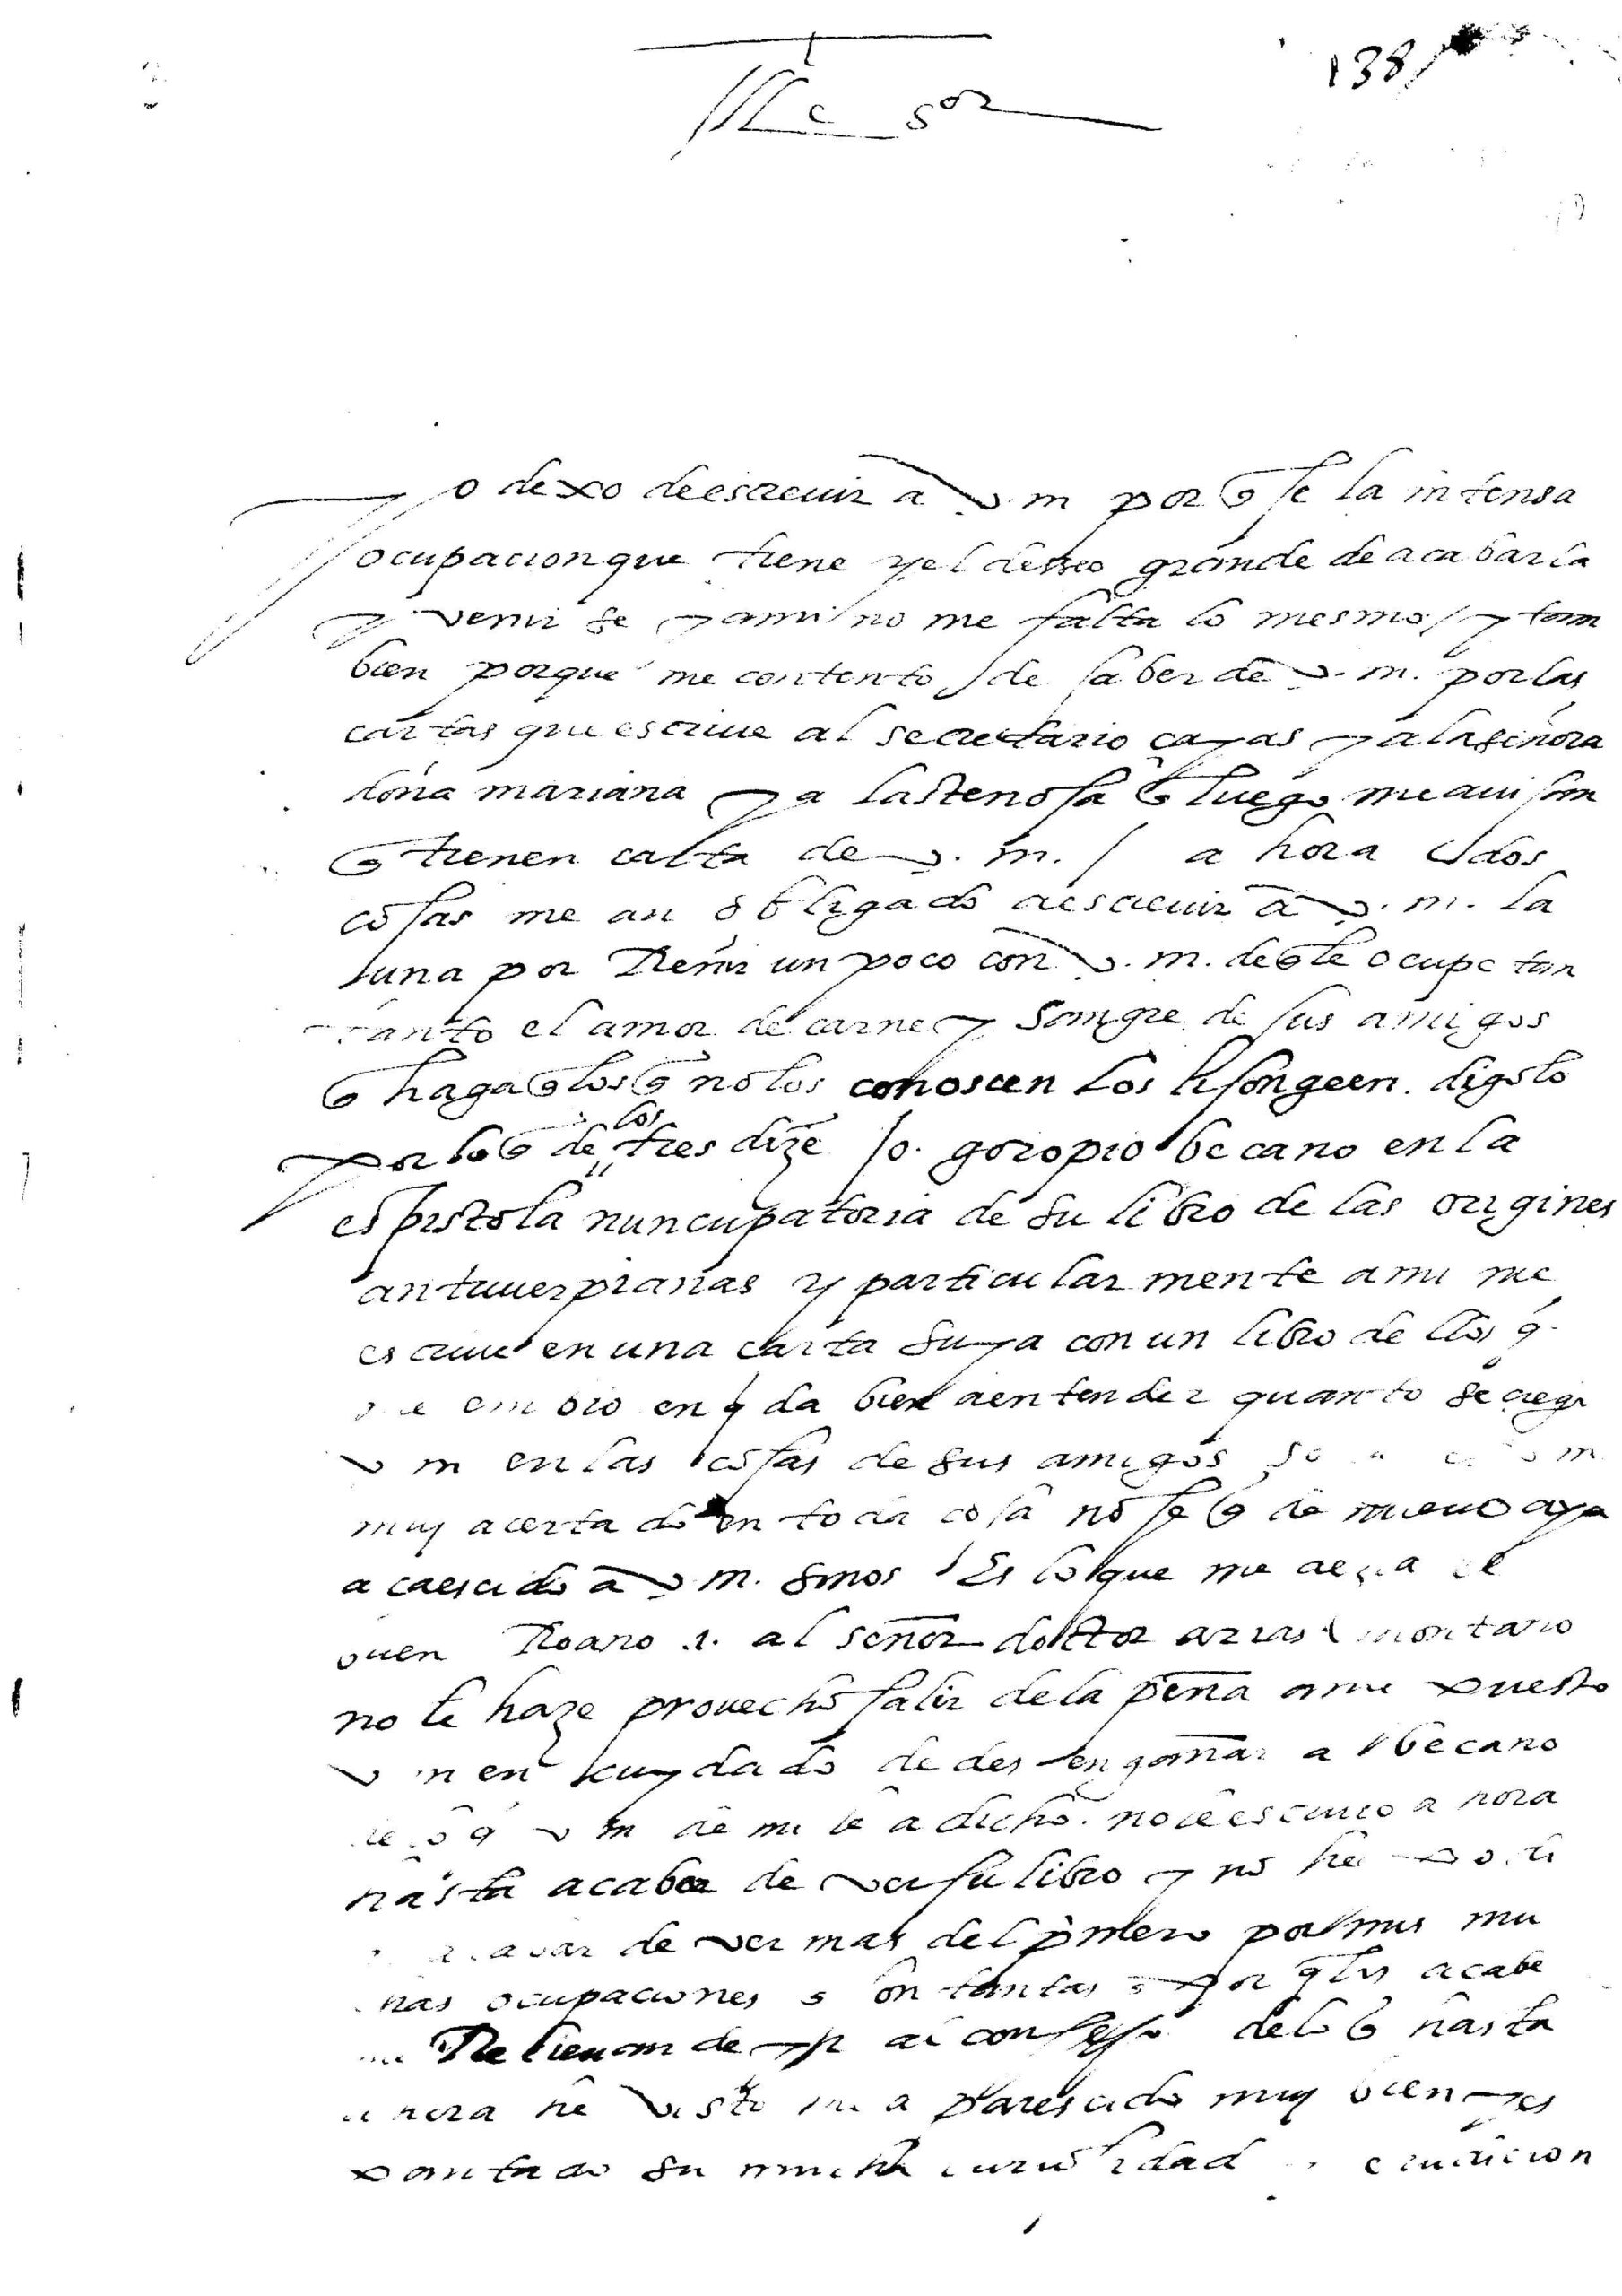 138
Ille Sor
Yo dexo de escreuir a v m por q se la intensa
ocupacion que tiene y el desseo grande de acabarla
y venir se y a mi no me falta lo mesmo / y tam
bien porque me contento de saber de v. m. por las
cartas que escriue al secretario çayas y a la señora
doña mariana y a lastenosa q luego me auisan
q tienen carta de v. m. / a hora dos
cosas me an obligado a escreuir a v. m. la
una por Reñir un poco con v. m. de q le ocupe tan
tanto el amor de carne y sangre de sus amigos
q haga q los q no los conoscen los lisongeen. digolo
por lo q de los tres dize Jo. goropio becano en la
espistola nuncupatoria de su libro de las origines
antuuerpianas y particularmente a mi me
escriue en una carta suya con un libro dellos q
me embio en q da bien a entender quanto se ciega
v m en las cosas de sus amigos
muy acertado en toda cosa no se q de nuevo aya
acaescido a v. m. sinos Es lo que me
buen Roano .1. al señor doctor arias montano
no le haze prouecho salir de la peña a me puesto
v m en cuydado de desengañar a becano
de lo q v m de mi le a dicho. no le escriuo a hora
hasta acabar de ver su libro y no he podi
de ver mas del primero por mis mu
chas ocupaciones son tantas por q las acabe
Relieuan de yr al confesso de lo q hasta
a hora he visto me a parescido muy bien y es
pantado su mucha curiosidad y erudicion